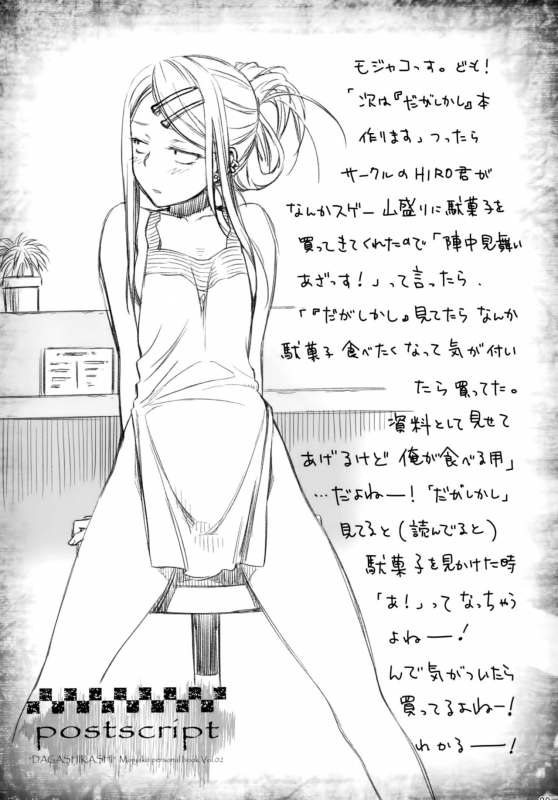 モジャコっす。ども!
「次は『だがしかし』本
作ります」つったら
サークルのHIRO君が
なんかスゲー山盛りに駄菓子を
買ってきてくれたので「陣中見舞い
あざっす!」って言ったら、
「『だがしかし』見てたらなんか
駄菓子食べたくなって気が付い
たら買ってた。
資料として見せて
あげるけど俺が食べる用」
…だよねー!「だがしかし」
見てると(読んでると)
駄菓子を見かけた時
「あ!」ってなっちゃう
よねー!
んで気がついたら
買ってるよねー!
わかるー!
postscript
DAGASHIKASHI personal book Vol.02